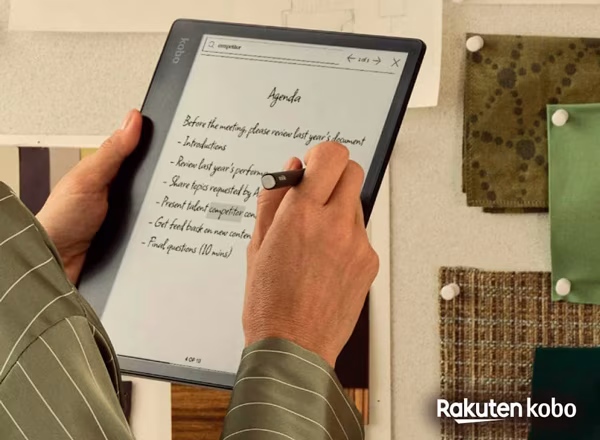 kobo
competitor
2 of 2
Agenda
Before the meeting, please review last year's document
- Introductions
- Review last year's perform
- Share topics requested by A
- Present talent competitor con
- Get feed back on new conten
- Final questions (10 mins)
4 OF 10
Rakuten kobo